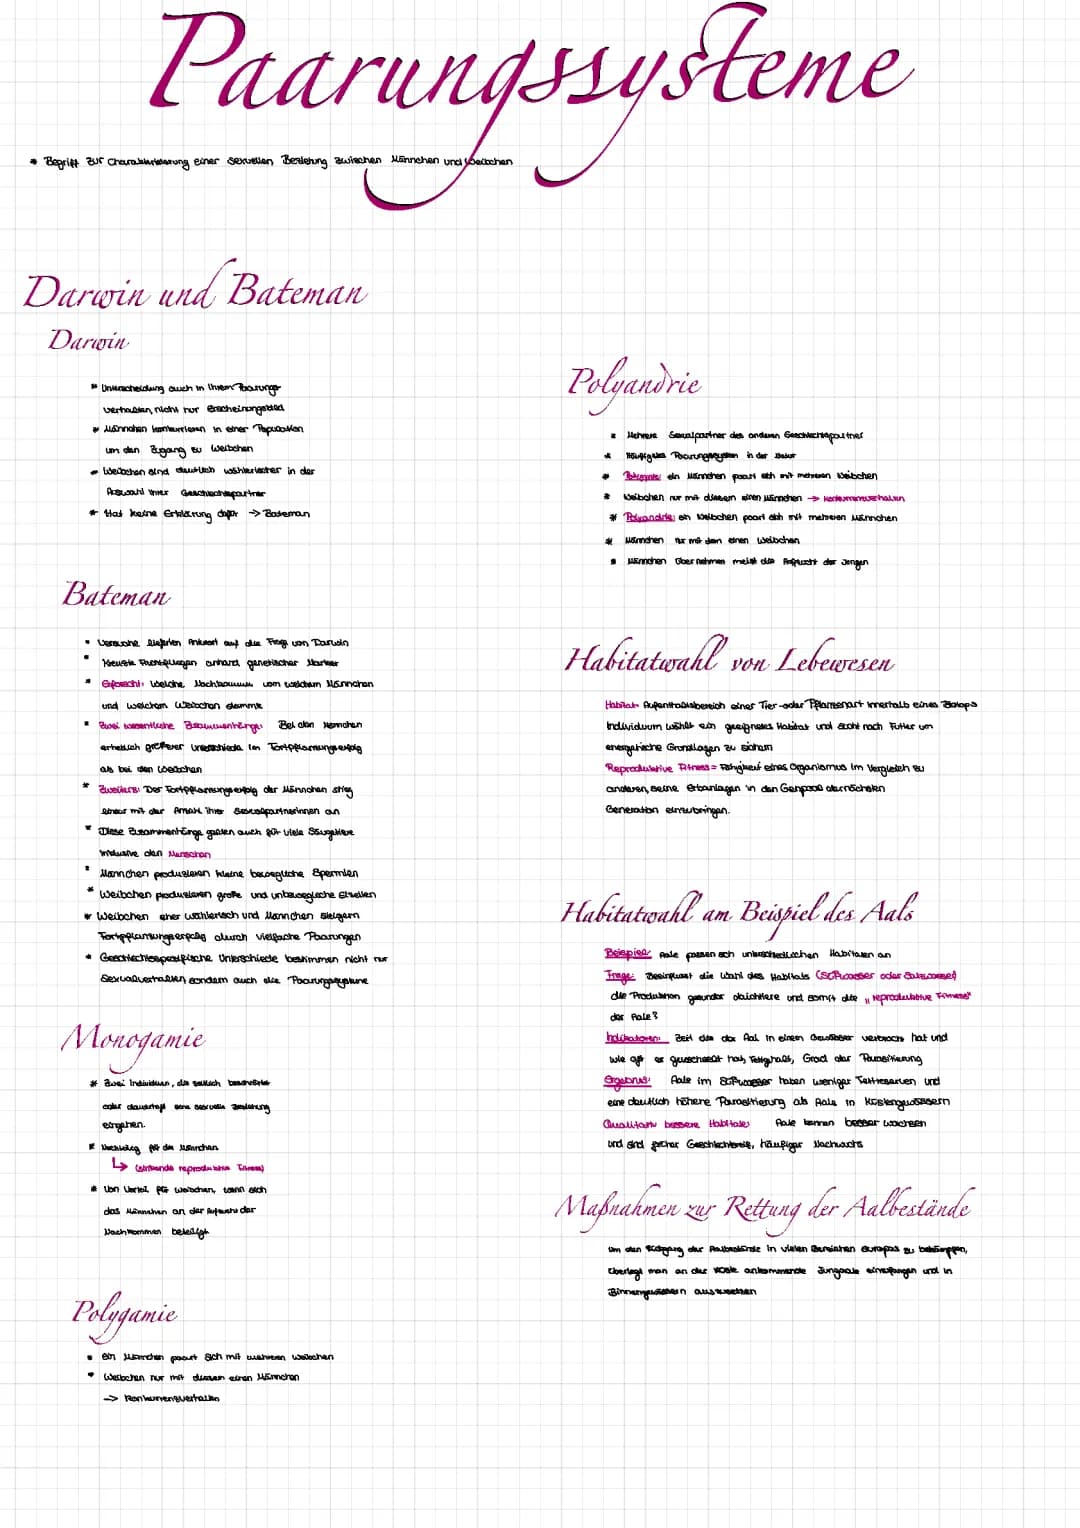 Paarungssysteme
* Begriff zur Charakterisierung einer sexuellen Beziehung zwischen Männchen und Weibchen
Darwin und Bateman
Darwin
* Unterscheidung auch in Ihrem Paarungs-
verhalten, nicht nur Erscheinungsbild
* Männchen konkurrieren in einer Population
um den Zugang zu Weibchen
* Weibchen sind deutlich wählerischer in der
Auswahl ihrer Geschlechtspartner
* Hat keine Erklärung dafür → Bateman
Bateman
* Versuche lieferten Antwort auf die Frage von Darwin
* Kreuzte Fruchtfliegen anhand genetischer Marker
* Erforscht: Welche Nachkommen vom welchem Männchen
und welchem Weibchen stammte
* Zwei wesentliche Zusammenhänge: Bei den Männchen
erheblich größerer Unterschiede im Fortpflanzungserfolg
als bei den Weibchen
* Zweitens: Der Fortpflanzungserfolg der Männchen stieg
linear mit der Anzahl ihrer Sexualpartnerinnen an
* Diese Zusammenhänge galten auch für viele Säugetiere
inklusive den Menschen
* Männchen produzieren kleine bewegliche Spermien
* Weibchen produzieren große und unbewegliche Eizellen
* Weibchen eher wählerisch und Männchen steigern
Fortpflanzungserfolg durch vielfache Paarungen
* Geschlechtsspezifische Unterschiede bestimmen nicht nur
Sexualverhalten sondern auch die Paarungssysteme
Monogamie
* Zwei Individuen, die zeitlich beschränkte
oder dauerhaft eine sexuelle Beziehung
eingehen.
* Nachteilig für die Männchen
↳ (sinkende reproduktive Fitness)
* Von Vorteil für Weibchen, wenn sich
das Männchen an der Aufzucht der
Nachkommen beteiligt
Polygamie
* ein Männchen paart sich mit mehreren Weibchen
* Weibchen nur mit diesem einen Männchen
→ Konkurrenzverhalten
Polyandrie
* Mehrere Sexualpartner des anderen Geschlechtspartner
* Häufigstes Paarungssystem in der Natur
* ein Männchen paart sich mit mehreren Weibchen
* Weibchen nur mit diesem einen Männchen → Konkurrenzverhalten
* Polyandrie: ein Weibchen paart sich mit mehreren Männchen
* Männchen nur mit dem einen Weibchen
* Männchen übernehmen meist die Aufzucht der Jungen
Habitatwahl von Lebewesen
Habitat= Aufenthaltsbereich einer Tier-oder Pflanzenart innerhalb eines Biotops
Individuum wählt ein geeignetes Habitat und sucht nach Futter um
energetische Grundlagen zu sichern
Reproduktive Fitness= Fähigkeit eines Organismus im Vergleich zu
anderen, seine Erbanlagen in den Genpool der nächsten
Generation einzubringen.
Habitatwahl am Beispiel des Aals
Beispiel: Aale passen sich unterschiedlichen Habitaten an
Frage: Beeinflusst die Wahl des Habitats (Süßwasser oder Salzwasser)
die Produktion gesunder Laichtiere und somit die „reproduktive Fitness"
der Aale?
Indikatoren: Zeit die der Aal in einem Gewässer verbracht hat und
wie oft er gewechselt hat, Fettgehalt, Grad der Parasitierung
Ergebnis: Aale im Süßwasser haben weniger Fettreserven und
eine deutlich höhere Parasitierung als Aale in Küstengewässern
Qualitativ bessere Habitate: Aale können besser wachsen
und sind früher Geschlechtsreif, häufiger Nachwuchs
Maßnahmen zur Rettung der Aalbestände
Um den Rückgang der Aalbestände in vielen Bereichen Europas zu bekämpfen,
überlegt man an der Küste ankommende Jungaale einzufangen und in
Binnengewässern auszusetzen